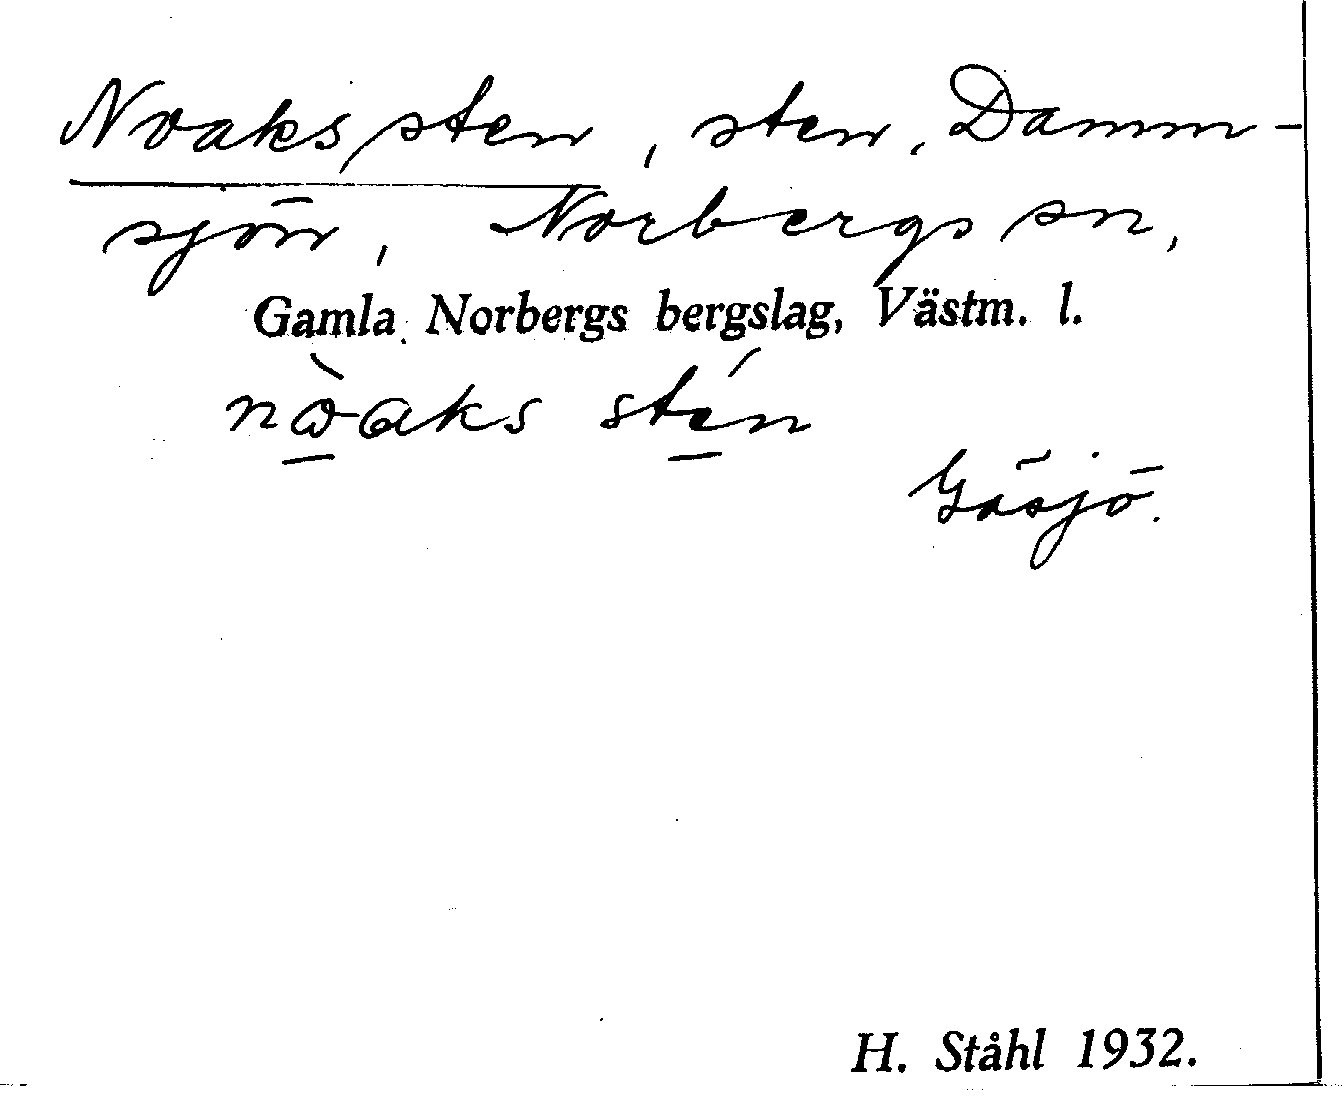 Noaks sten, sten, Damm-
sjön, Norbergs sn,
Gamla Norbergs bergslag, Västm. l.
nòaks stén
Gäsjö.
H. Ståhl 1932.